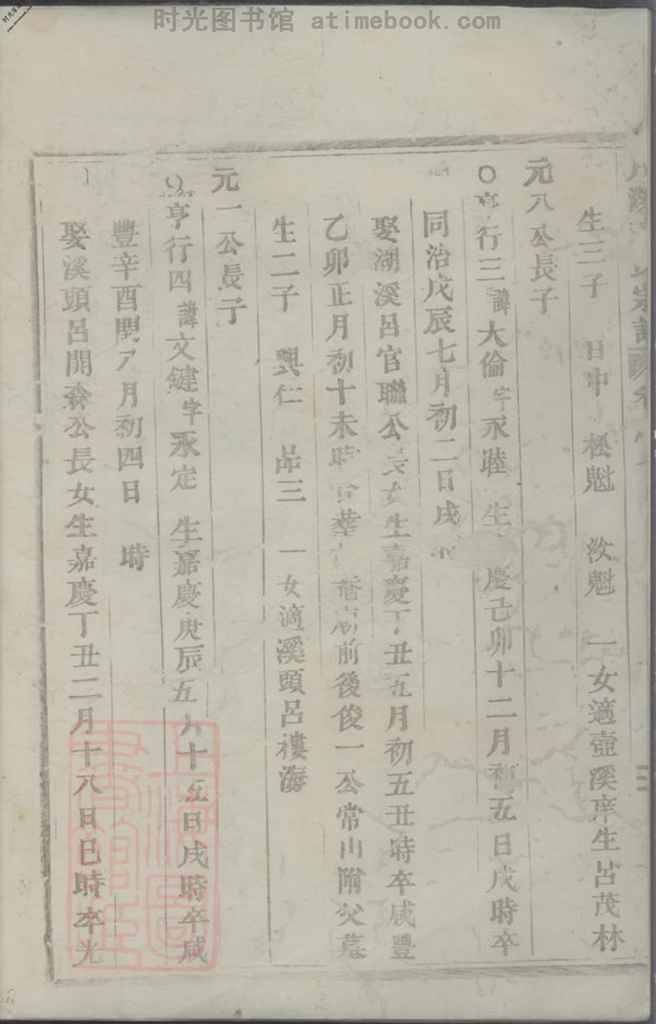 时光图书馆 atimebook.com
生三子 日中 松魁 汝魁 一女適壺溪庠生呂茂林
元八公長子
行三諱大倫字永睦 生 慶己卯十二月初五日戌時卒
同治戊辰七月初二日戌
娶湖溪呂官聯公長女生嘉慶丁丑五月初五丑時卒咸豐
乙卯正月初十未時 葬 前後俊一公常山附父墓
生二子 興仁 品三 一女適溪頭呂樓海
元一公長子
亨行四諱文鍵字永定 生嘉慶庚辰五月十五日戌時卒咸
豐辛酉 月初四日 時
娶溪頭呂開 公長女生嘉慶丁丑二月十八日巳時卒光